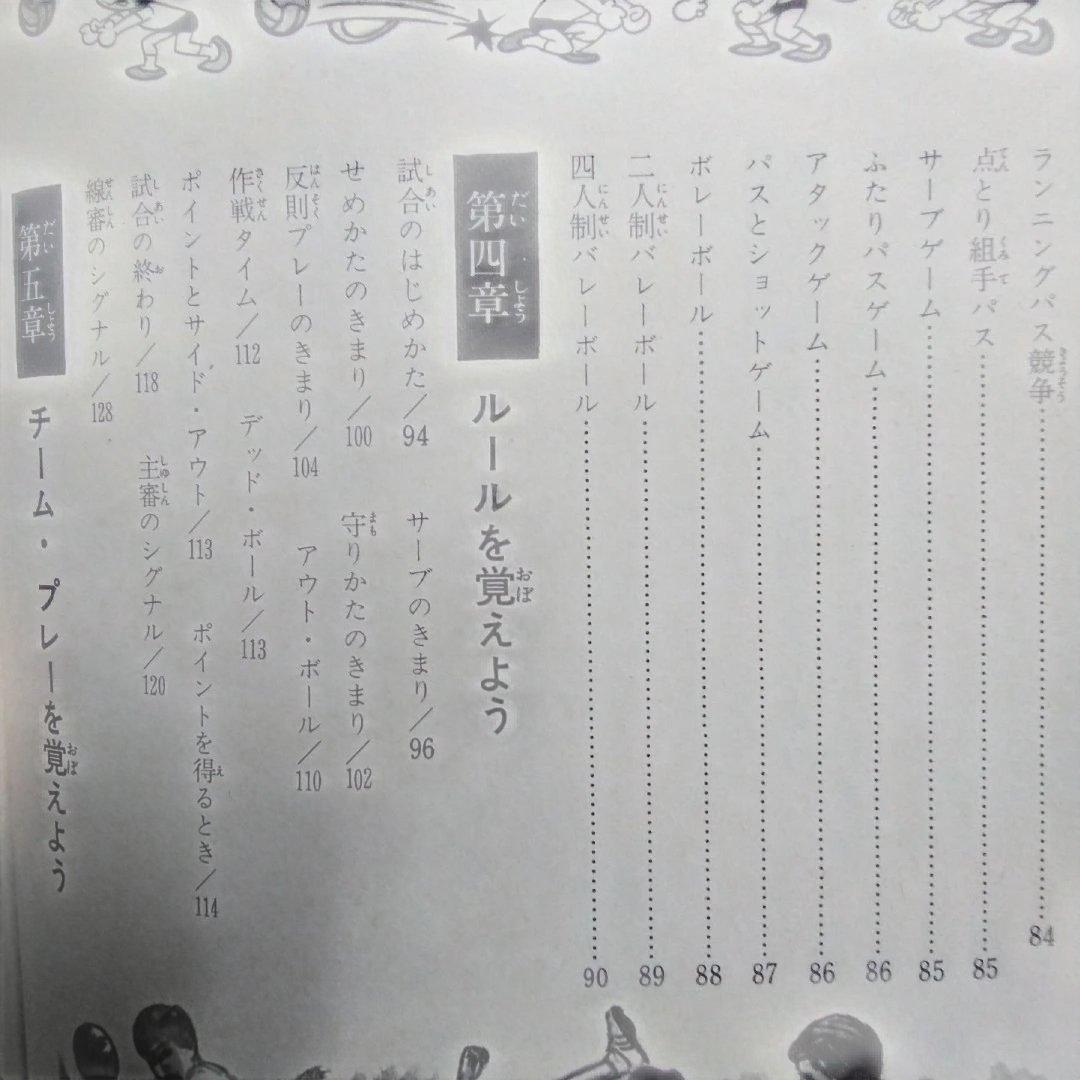 ランニングパス競争……84
点とり組手パス……85
サーブゲーム……85
ふたりパスゲーム……86
アタックゲーム……86
パスとショットゲーム……87
ボレーボール……88
二人制バレーボール……89
四人制バレーボール……90
第四章 ルールを覚えよう
試合のはじめかた/94 サーブのきまり/96
せめかたのきまり/100 守りかたのきまり/102
反則プレーのきまり/104 アウト・ボール/110
作戦タイム/112 デッド・ボール/113
ポイントとサイド・アウト/113 ポイントを得るとき/114
試合の終わり/118 主審のシグナル/120
線審のシグナル/128
第五章 チーム・プレーを覚えよう